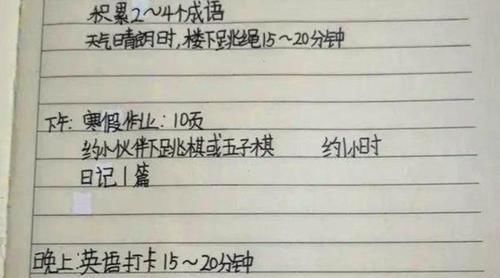 积累2～4个成语
天气晴朗时,楼下跳绳15～20分钟
下午:寒假作业:10页
约小伙伴下跳棋或五子棋 约1小时
日记1篇
晚上:英语打卡15～20分钟